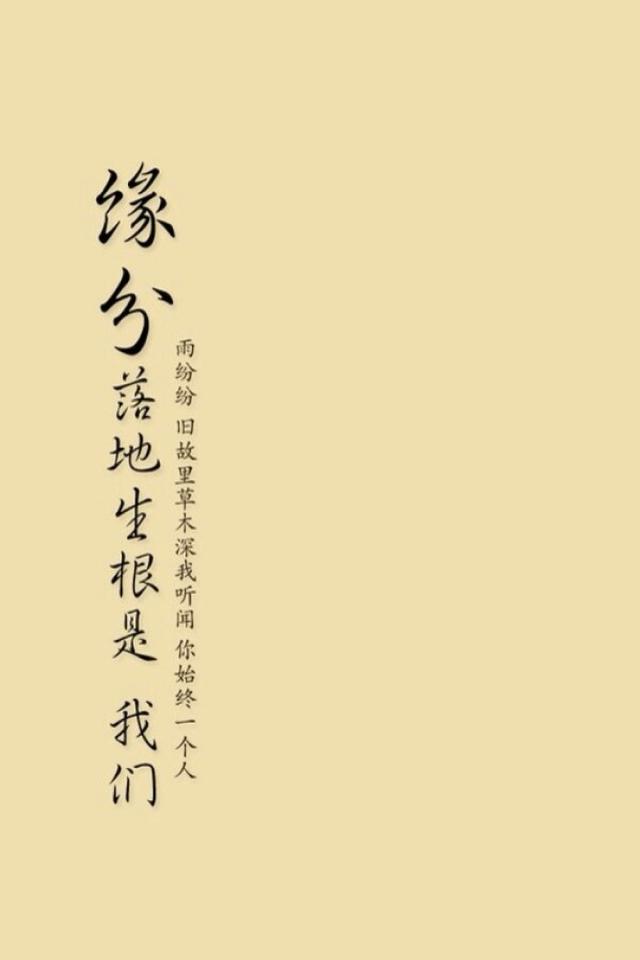 缘分落地生根是 我们
雨纷纷 旧故里草木深我听闻 你始终一个人